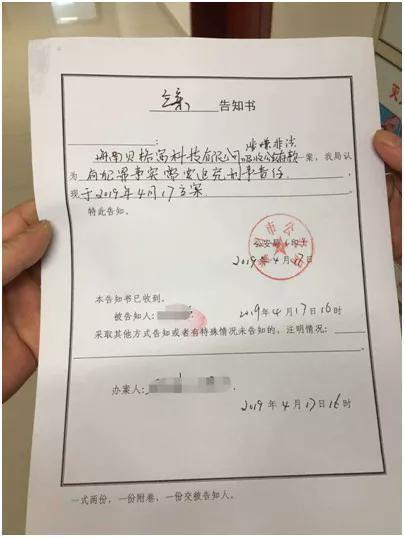 立案 告知书
：
海南贝格富科技有限公司涉嫌非法
吸收公众存款一案，我局认
为 有犯罪事实需要追究刑事责任，
现于2019年4月17立案
特此告知。
公安局（印）
2019年4月17日
本告知书已收到。
被告知人： 2019年4月17日16时
采取其他方式告知或者有特殊情况未告知的，注明情况：
办案人：
2019年4月17日16时
一式两份，一份附卷，一份交被告知人。